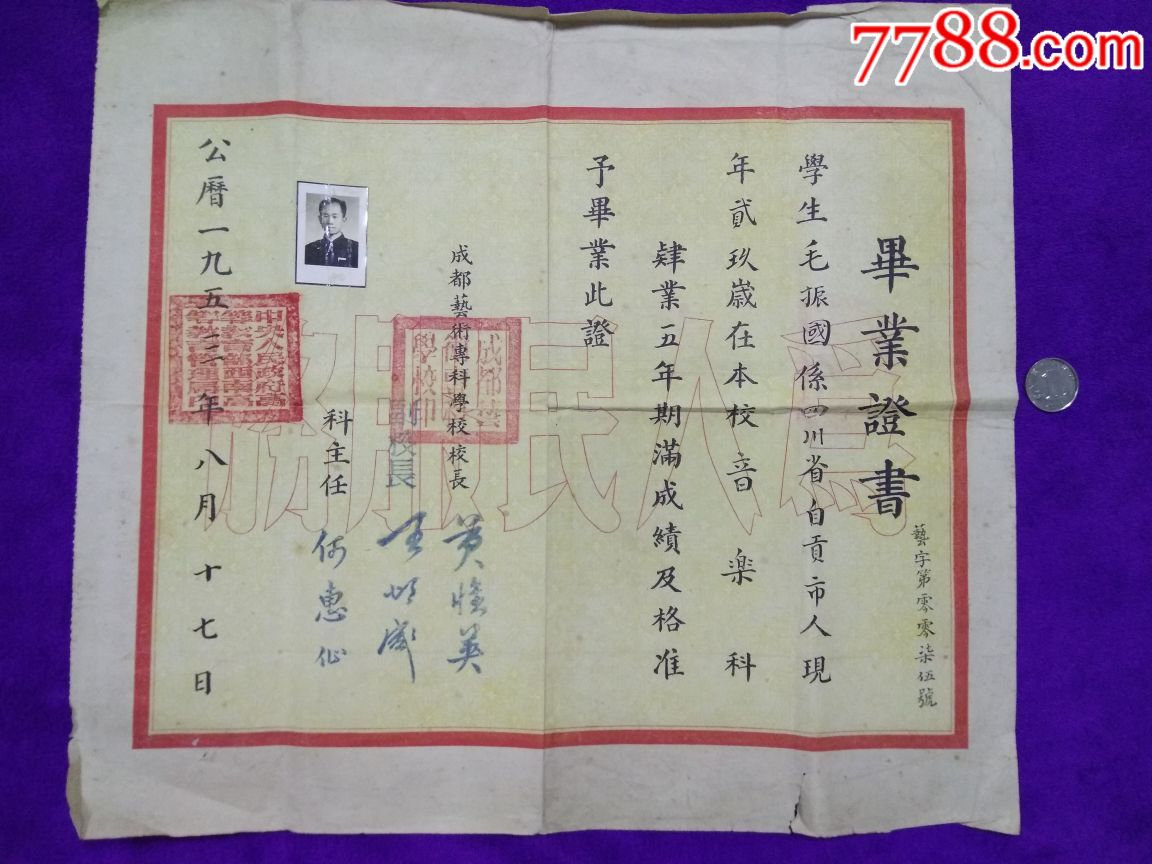 7788.com
畢業證書
藝字第零零柒伍號
學生毛振國係四川省自貢市人現
年貳玖歲在本校音楽科
肄業五年期滿成績及格准
予畢業此證
成都藝術專科學校校長
副校長
科主任
何惠仙
公曆一九五三年八月十七日
為人民服務